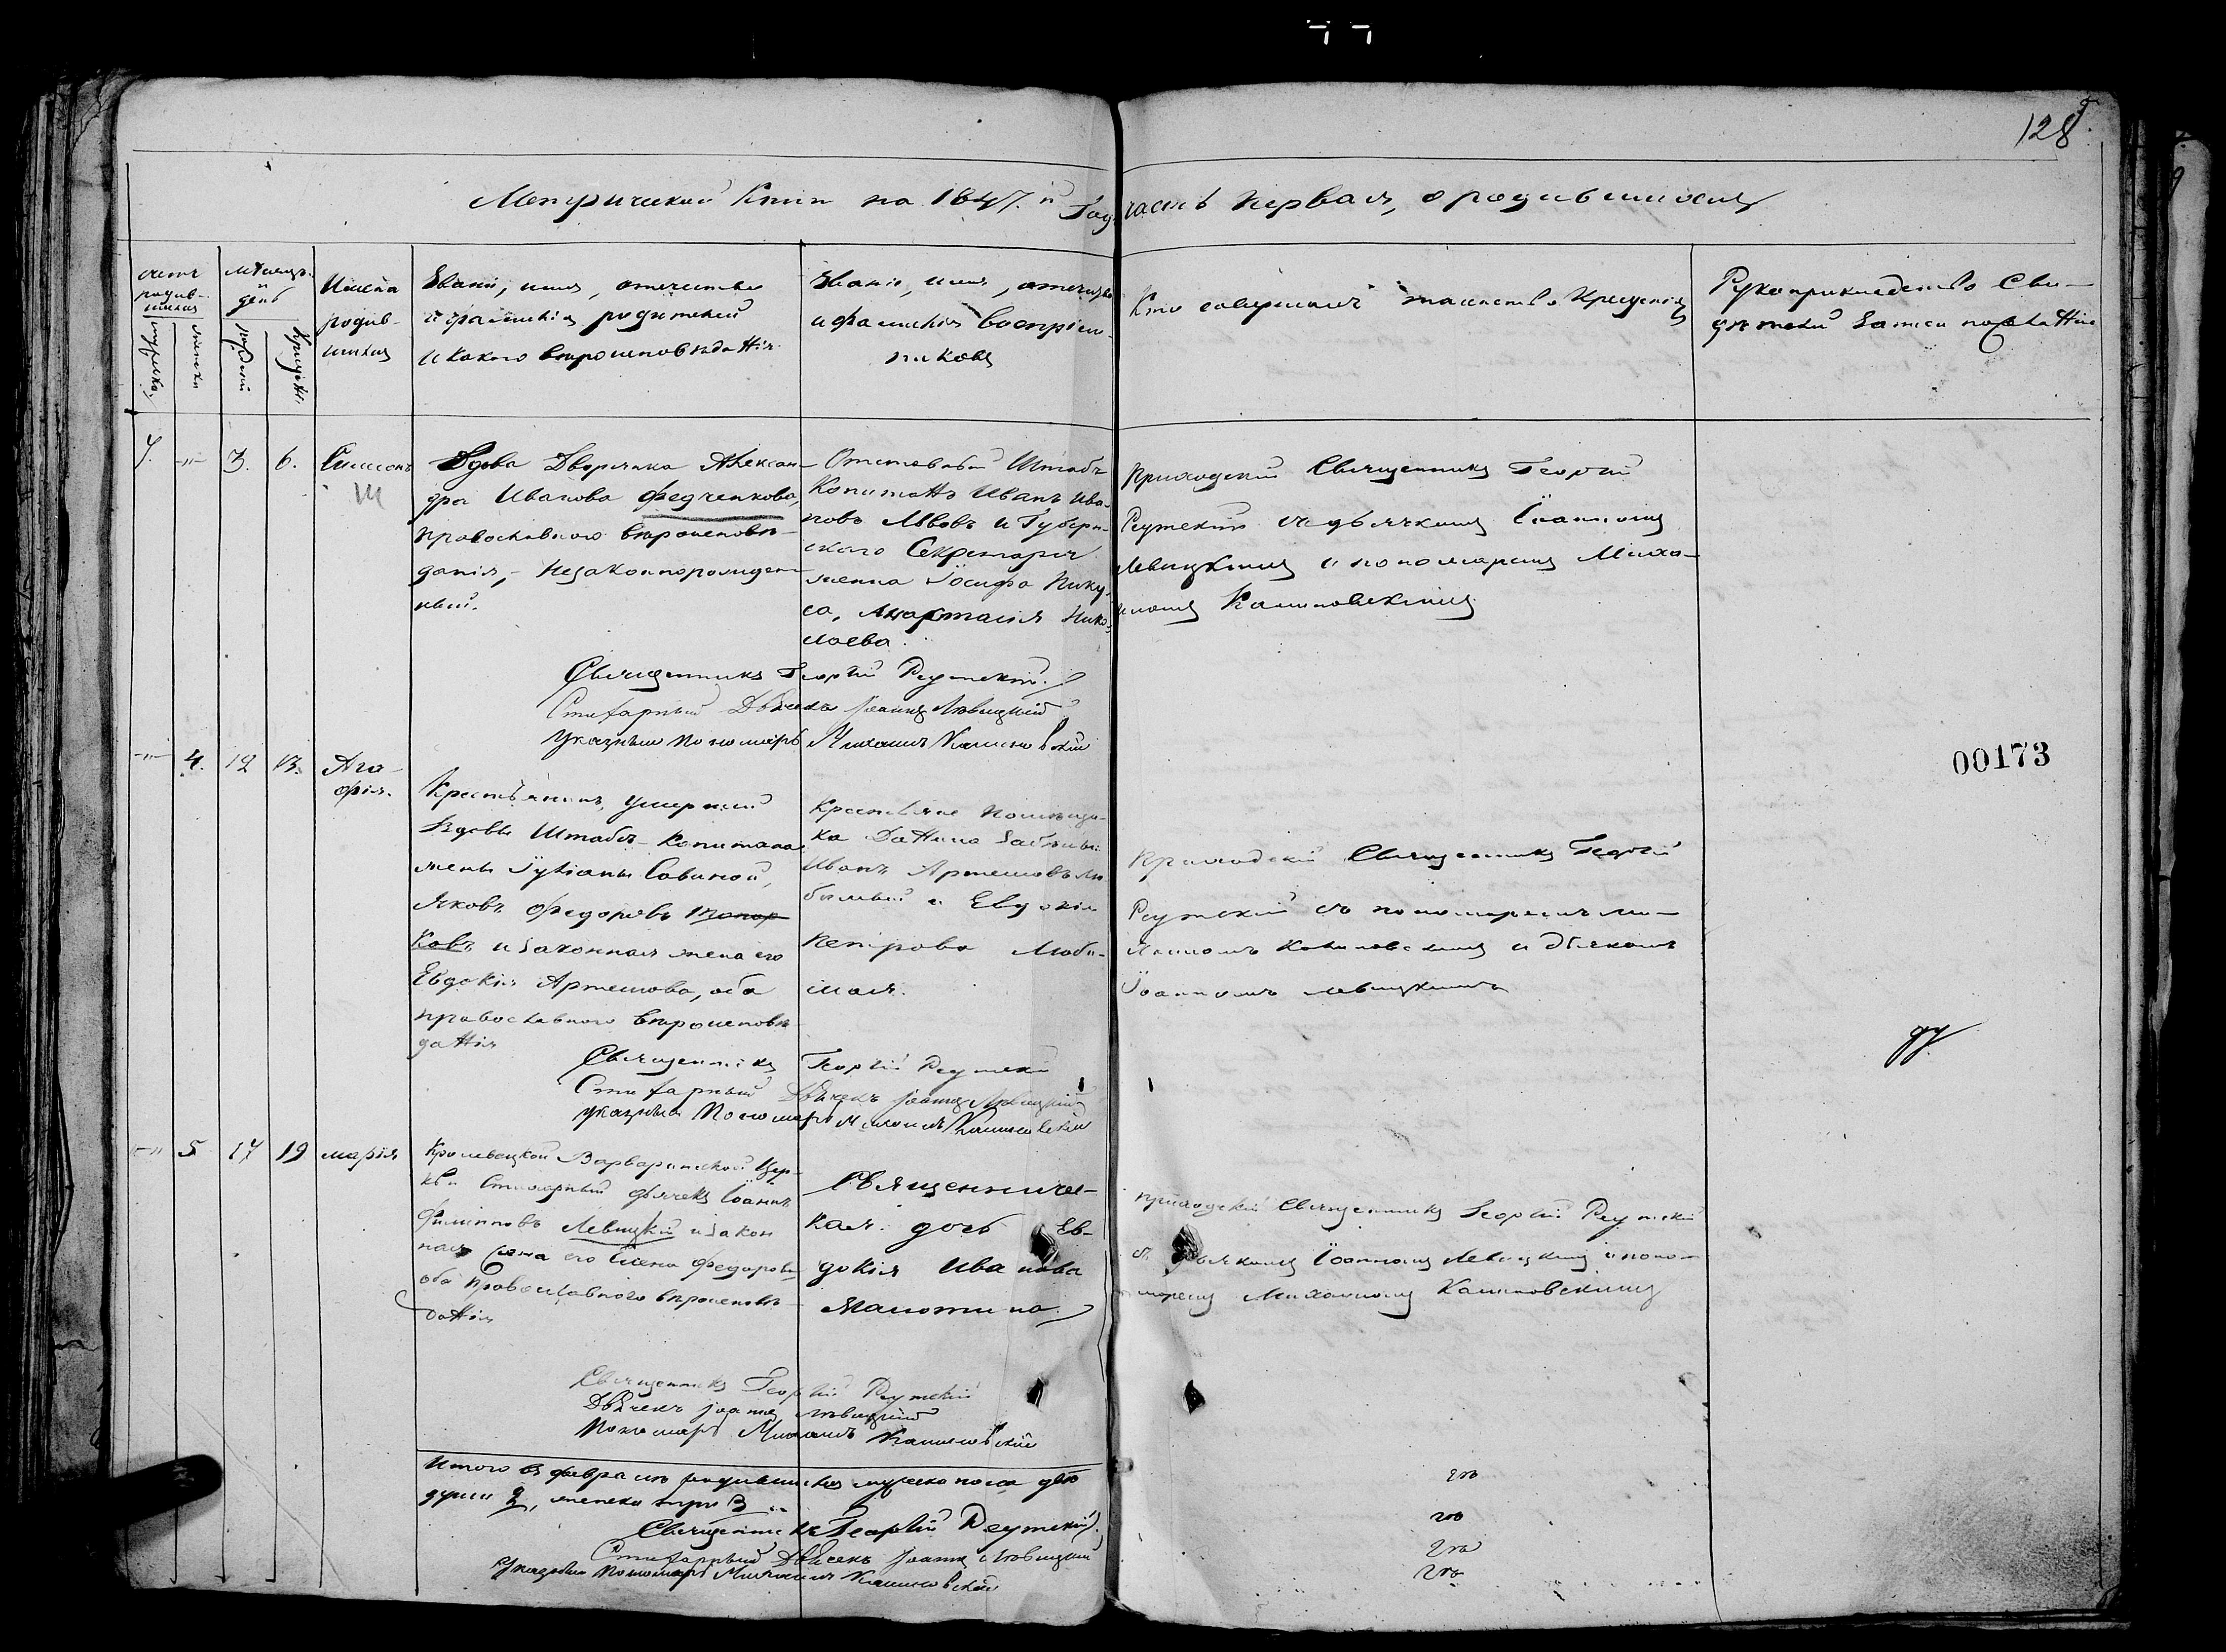 128
Метрической книги на 1847.й Годъ часть первая, о родившихся
счетъ родив-шихся
мужеска
женска
мѣсяцъ и день
рожденія
крещенія
Имена
родив-
шихся
Званіе, имя, отечество
и фамилія родителей
и какого вѣроисповѣданія.
Званіе, имя, отечество
и фамилія воспріем-
никовъ
Кто совершалъ таинство крещенія
Рукоприкладство сви-
дѣтелей записи по желанію
3. 6. Симеонъ
Вдова Дворянка Алексан-
дра Иванова Федченкова,
православного вѣроисповѣ-
данія, незаконнорожден-
ный.
Отставный Штабъ
Капитанъ Иванъ Ива-
новъ Львовъ и Губерн-
скаго Секретаря
жена Іосифа
Анастасія Нико-
лаева.
Приходскій Священникъ Георгій
Реутскій съ дьячкомъ Іоанномъ
Левицкимъ и пономаремъ Миха-
иломъ Калиновскимъ
Священникъ Георгій Реутскій.
Стихарный Дьячекъ Іоаннъ Левицкій
Указный Пономарь Михаилъ Калиновскій
4. 12 13. Ага-
фія.
Крестьянинъ, умершей
вдовы Штабъ-Капитана
жены Іуліаны Савиной,
Яковъ Федоровъ Топор-
ковъ и законная жена его
Евдокія Артемова, оба
православного вѣроисповѣ-
данія
Крестьяне помѣщи-
ка Данила Забѣлы:
Иванъ Артемовъ Лю-
бимый и Евдокія
Петрова Люби-
мая.
Приходскій Священникъ Георгій
Реутскій съ пономаремъ Ми-
хаиломъ Калиновскимъ и дьячкомъ
Іоанномъ Левицкимъ
00173
Священникъ Георгій Реутскій
Стихарный Дьячекъ Іоаннъ Левицкій
Указный Пономарь Михаилъ Калиновскій
5 17 19 Марія
Кролевецкой Варваринской Цер-
кви Стихарный дьячекъ Іоаннъ
Филипповъ Левицкій и закон
ная жена его Елена Федорова
оба православного вѣроисповѣ-
данія
Священничес-
кая дочь Ев-
докія Иванова
Малютина.
приходскій Священникъ Георгій Реутскій
съ дьячкомъ Іоанномъ Левицкимъ и поно-
маремъ Михаиломъ Калиновскимъ
Священникъ Георгій Реутскій
Дьячекъ Іоаннъ Левицкій
Пономарь Михаилъ Калиновскій
Итого въ февралѣ родившихся мужеска пола двѣ
души 2, женска три 3
Священникъ Георгій Реутскій.
Стихарный Дьячекъ Іоаннъ Левицкій
Указный Пономарь Михаилъ Калиновскій